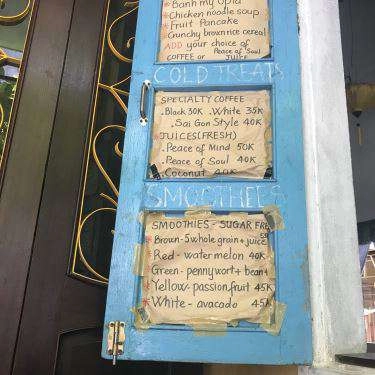 * Banh my Opla
* Chicken noodle soup
* Fruit Pancake
Crunchy brown rice cereal
ADD your choice of
COFFEE or Peace of Soul JUICE
COLD TREATS
SPECIALTY COFFEE
. Black 30K . White 35K
. Sai Gon Style 40K
* JUICES (FRESH)
. Peace of Mind 50K
. Peace of Soul 40K
. Coconut 40K
SMOOTHEES
SMOOTHIES - SUGAR FREE
* Brown - 5 whole grain + juice
Red - water melon 40K
Green - pennywort + bean +
* Yellow - passion fruit 45K
* White - avacado 45K